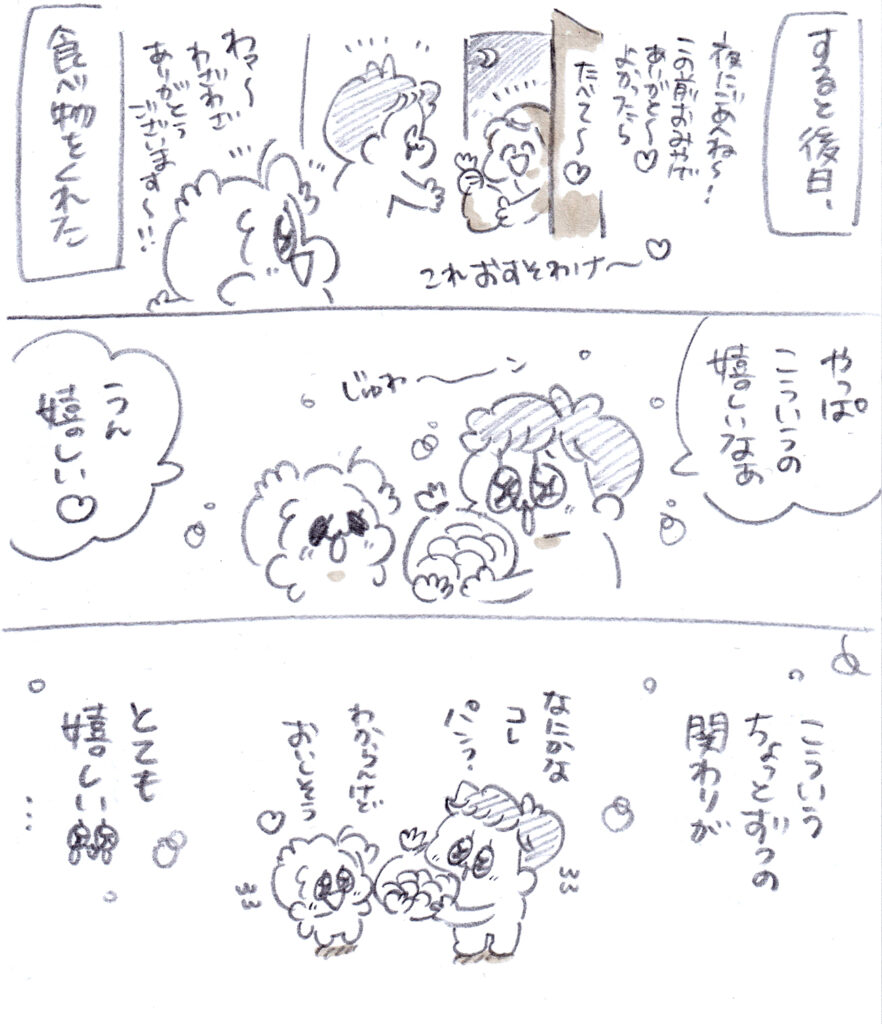 すると後日、
夜にごめんね〜!
この前おみやげ
ありがと〜♡
よかったら
たべて〜♡
これおすそわけ〜♡
わァ〜
わざわざ
ありがとう
ございます〜!!
食べ物をくれた
やっぱ
こういうの
嬉しいなぁ
じゅわ〜〜ン
うん
嬉しい♡
こういう
ちょっとずつの
関わりが
なにかな
コレ
パン?
わからんけど
おいしそう
♡
とても
嬉しい
…